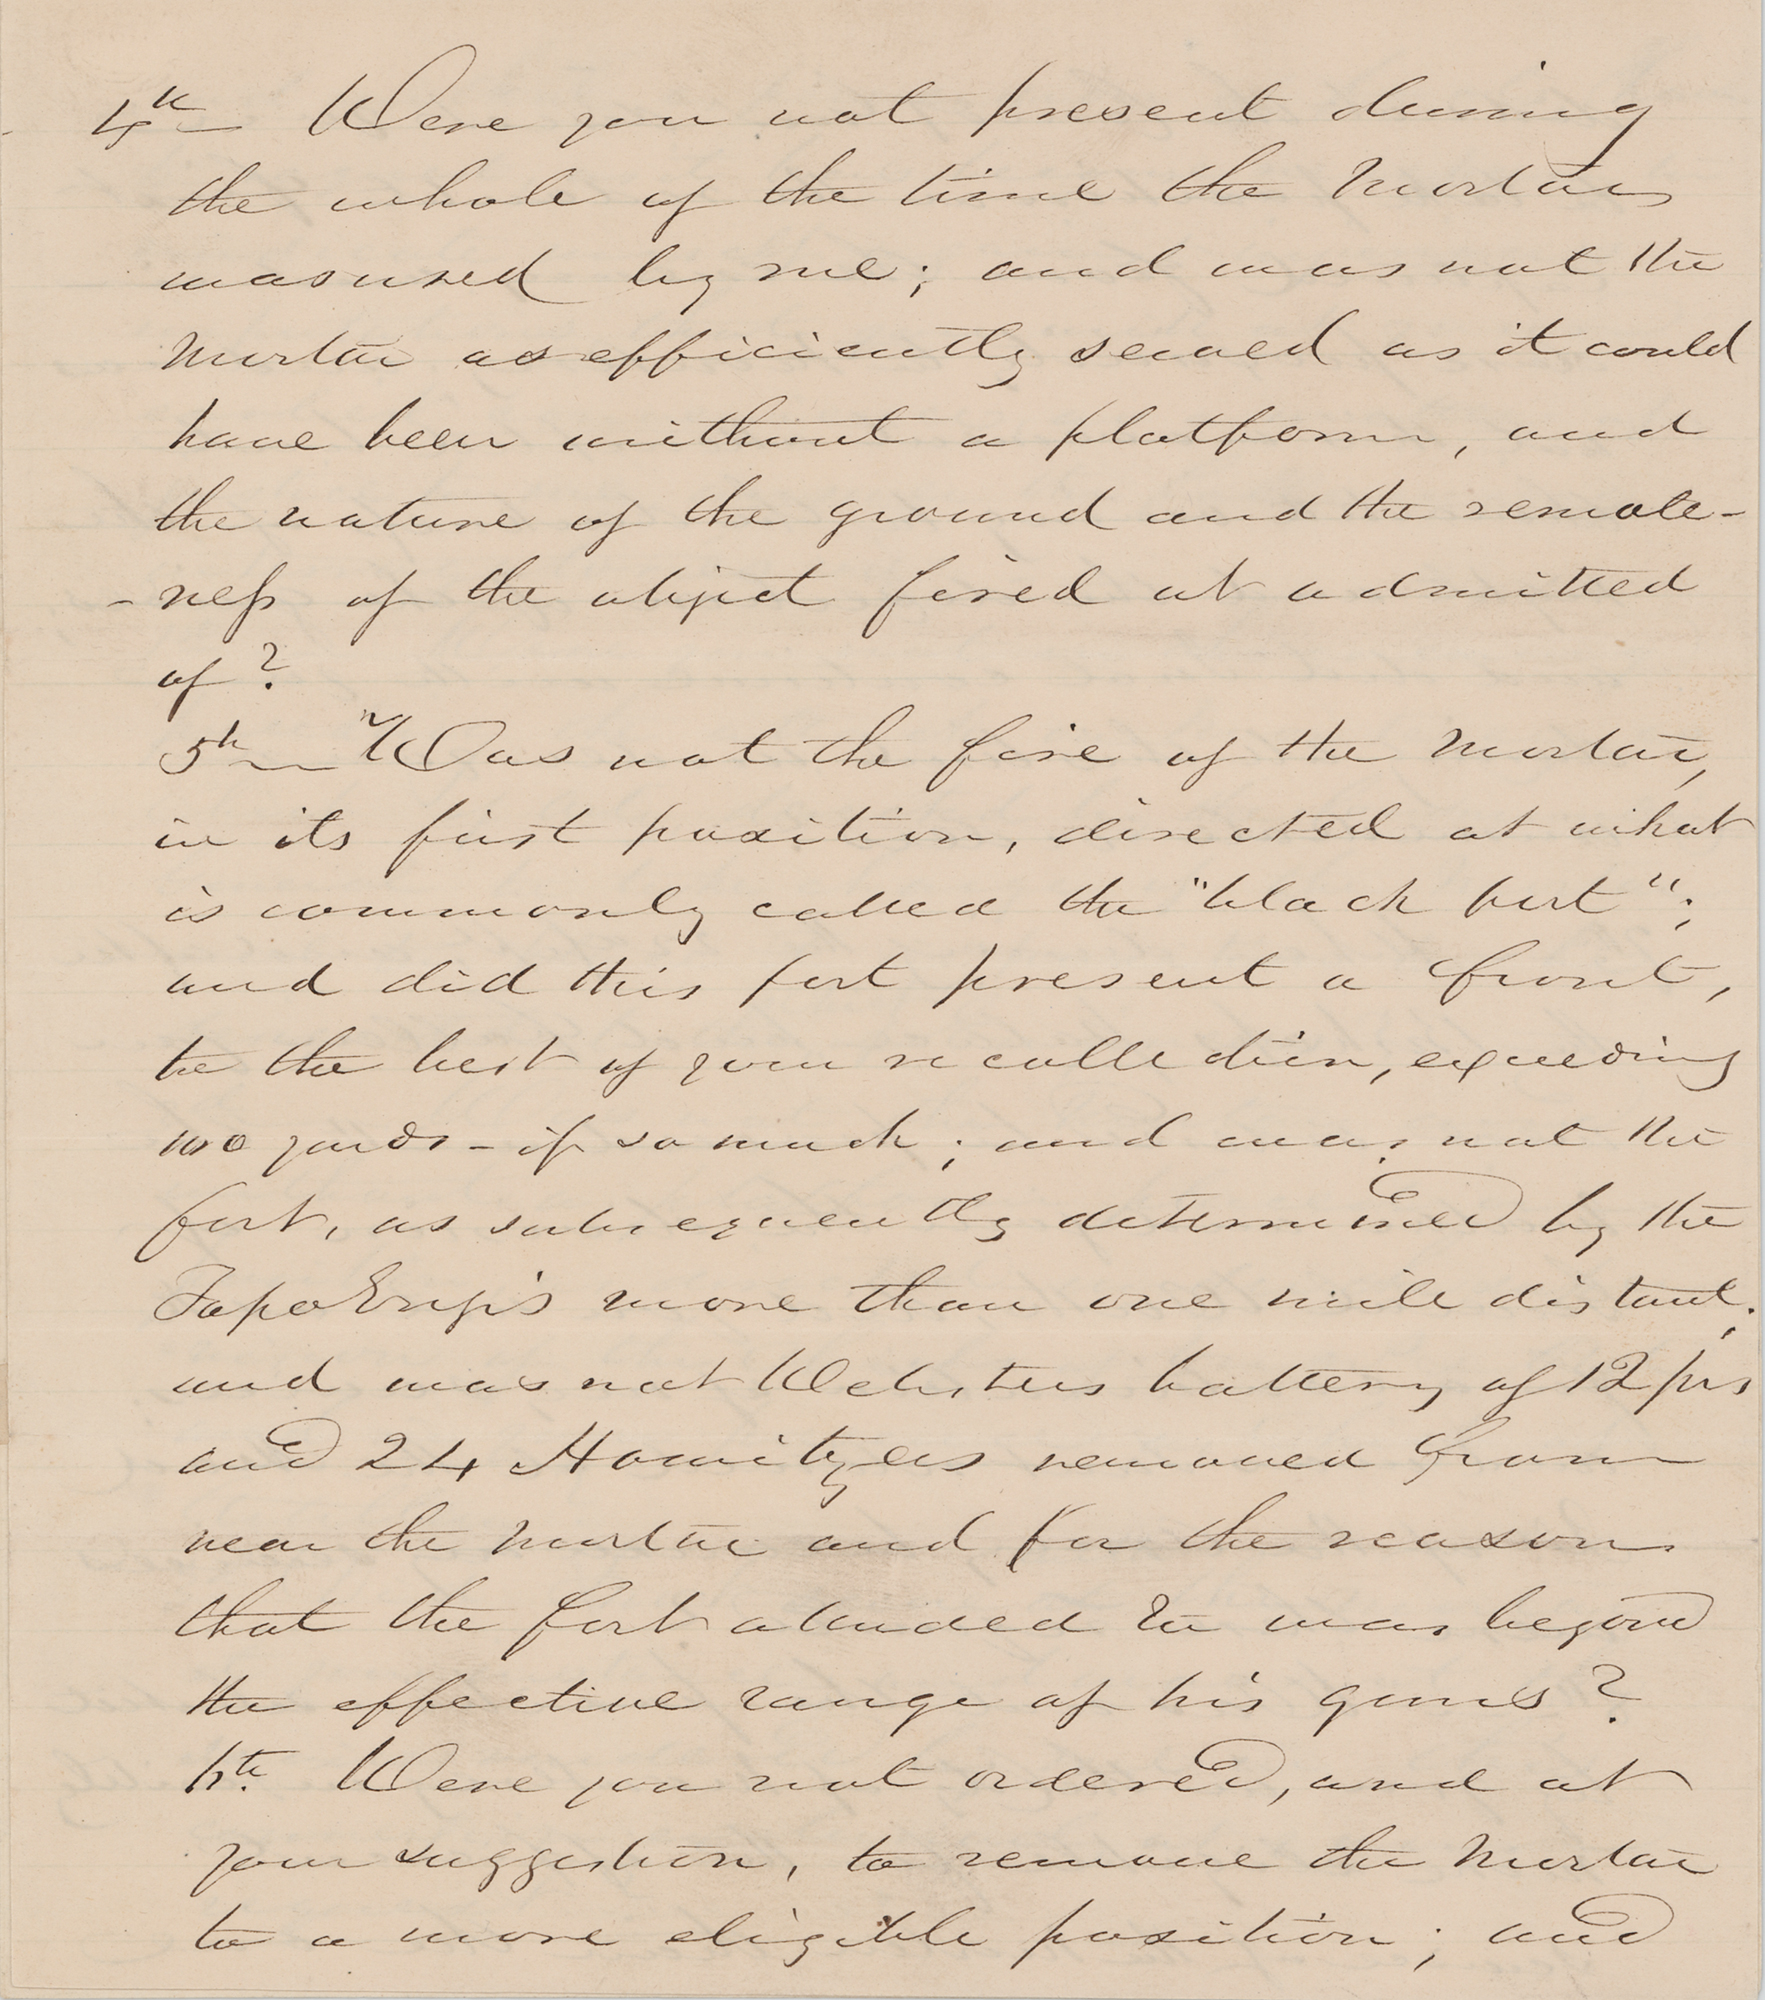 4th Were you not present during
the whole of the time the Mortar
was used by me; and was not the
Mortar as efficiently served as it could
have been without a platform, and
the nature of the ground and the remote-
-ness of the object fired at admitted
of?
5th "Was not the fire of the Mortar,
in its first position, directed at what
is commonly called the "black fort";
and did this fort present a front,
to the best of your recollection, exceeding
100 yards - if so much; and was not the
fort, as subsequently determined by the
Topo Eng's more than one mile distant;
and was not Websters battery of 12 prs
and 24 Howitzers removed from
near the mortar and for the reason
that the fort alluded to was beyond
the effective range of his guns?
6th. Were you not ordered, and at
your suggestion, to remove the Mortar
to a more eligible position; and